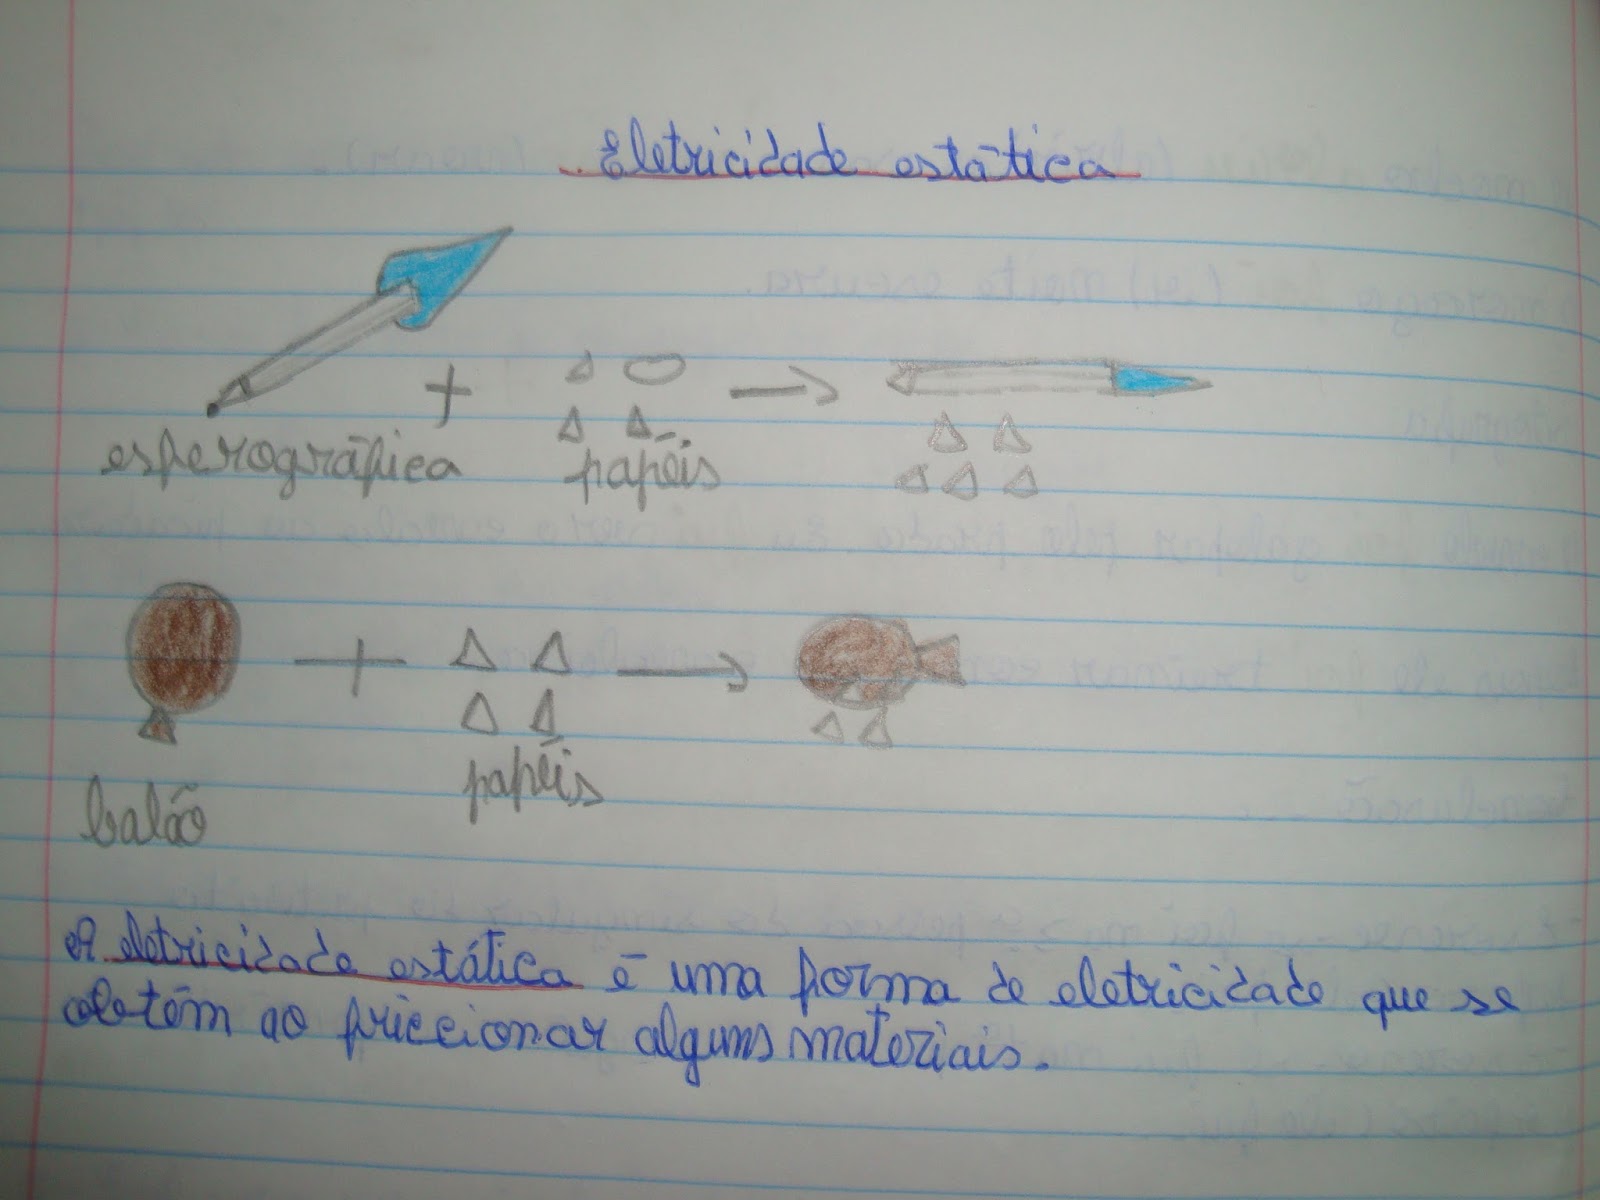 Eletricidade estática
+
→
esferográfica
papéis
+
→
papéis
balão
A eletricidade estática é uma forma de eletricidade que se
obtém ao friccionar alguns materiais.